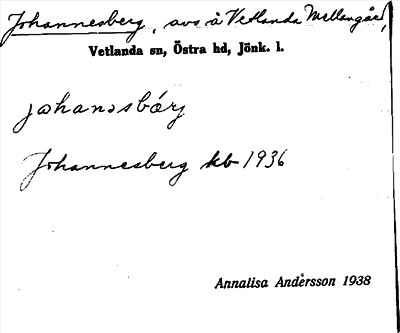 Johannesberg, avs å Vetlanda Mellangård,
Vetlanda sn, Östra hd, Jönk. l.
johanəsbärj
Johannesberg kb 1936
Annalisa Andersson 1938